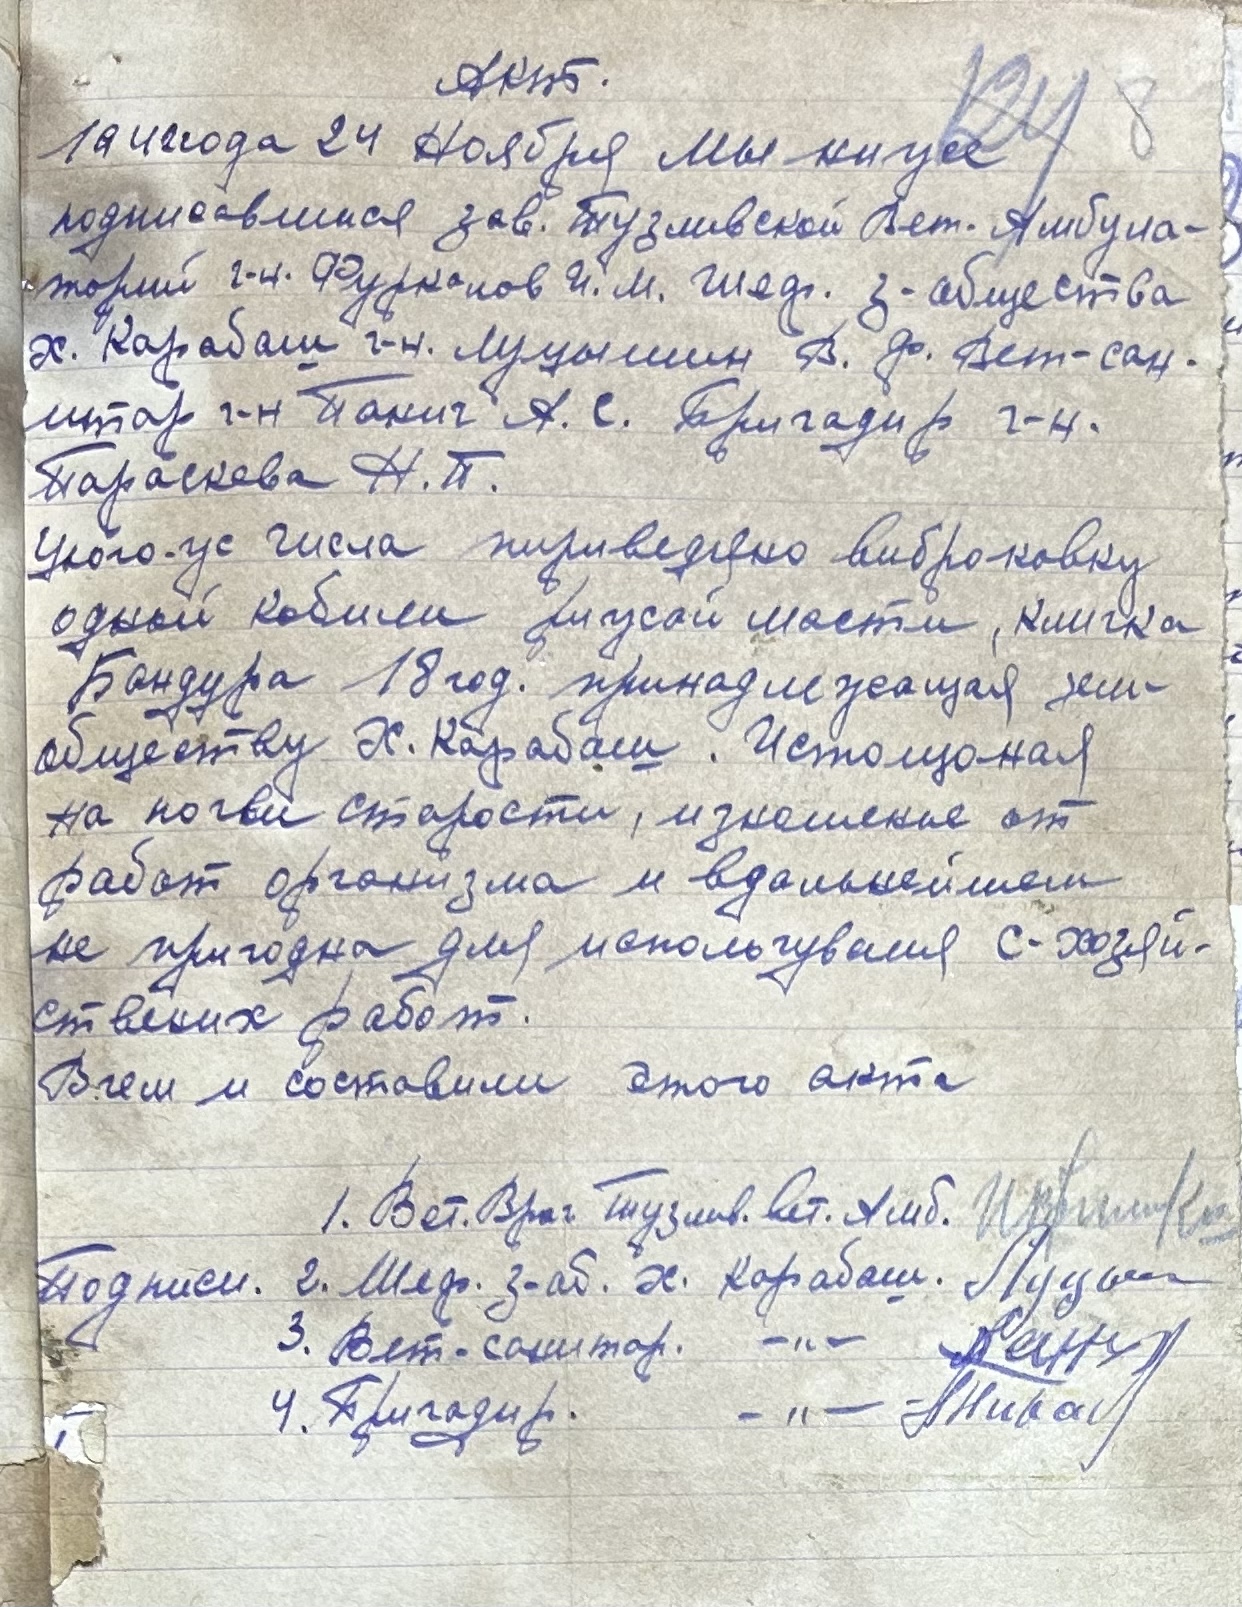 Акт.
8
1942 года 24 Ноября Мы ниже
подписавшиеся зав. Тузливской Вет. Амбула-
торий г-н. Фурканов И. М. Шеф. з-общества
х. Карабаш г-н. Луцышин В. Ф. Вет-сан-
итар г-н Панич А. С. Бригадир г-н.
Параскева Н. П.
числа выброковку
одной кобили рижой масти, кличка
Бандура 18 год. принадлежащая зем-
обществу Х. Карабаш. Истощоная
на почви старости, изношеные от
работ организма и вдальнейшем
не пригодна для использувания С-хозяй-
ствених работ.
Вчем и составили этого акта
1. Вет. Врач Тузлив. вет. Амб.
Подписи. 2. Шеф. з-об. Х. Карабаш. Луцыш
3. Вет-санитар. -"-
4. Бригадир. -"-